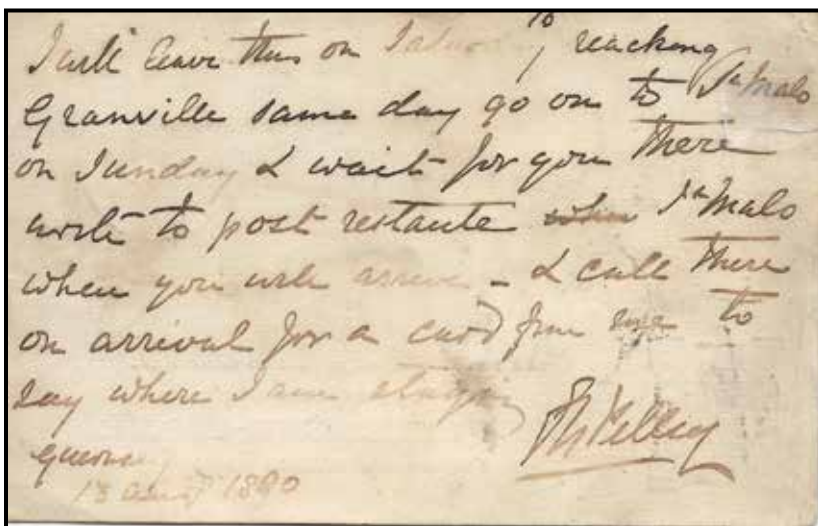 I will leave this on
reaching
Granville same day go on to St Malo
on Sunday & wait for you there
write to post restante when St Malo
when you will arrive - & call there
on arrival for a card from me to
say where I am staying
13 1890